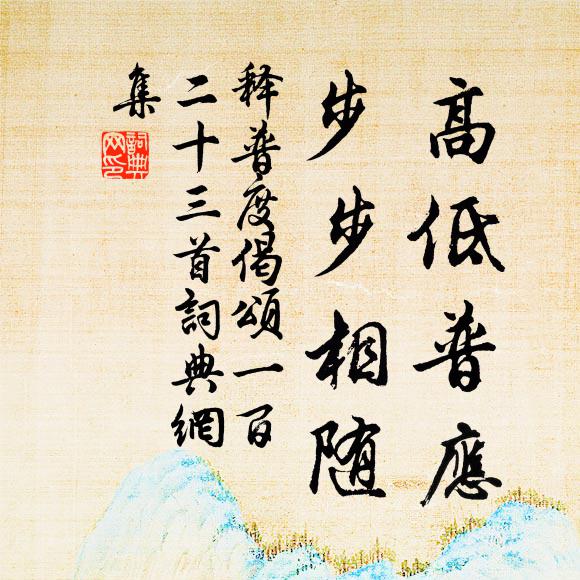 高低普應
步步相随
释普度偈頌一百
二十三首詞典網
集
詞典網印